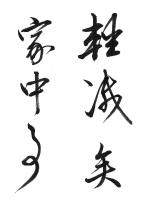 輕減矣
家中事